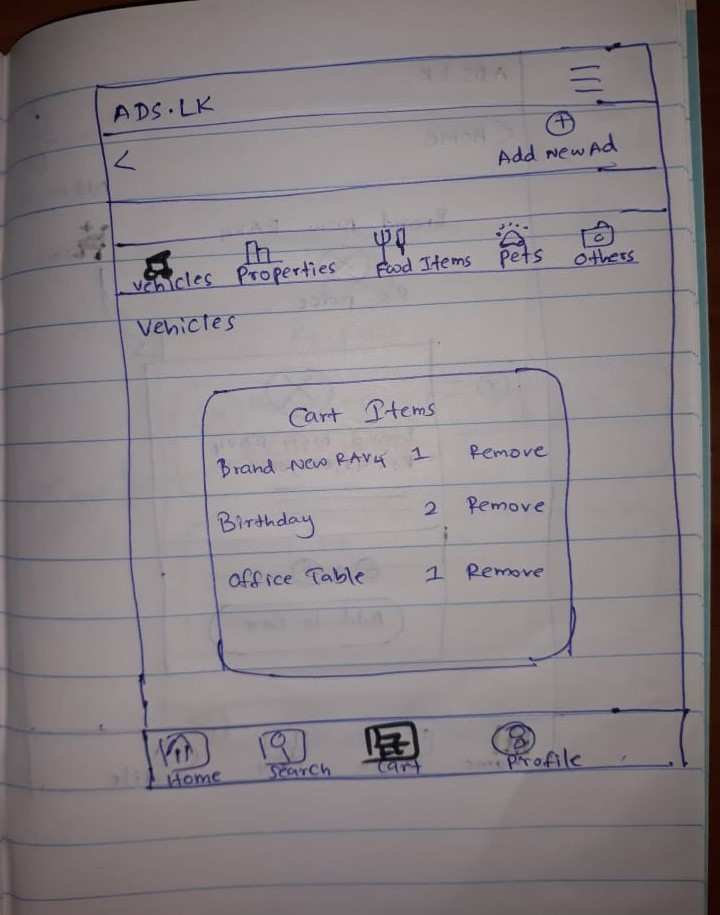 ADS.LK
<
Add New Ad
Vehicles Properties Food Items Pets Others
Vehicles
Cart Items
Brand New RAV4 1 Remove
Birthday 2 Remove
Office Table 1 Remove
Home Search Cart Profile